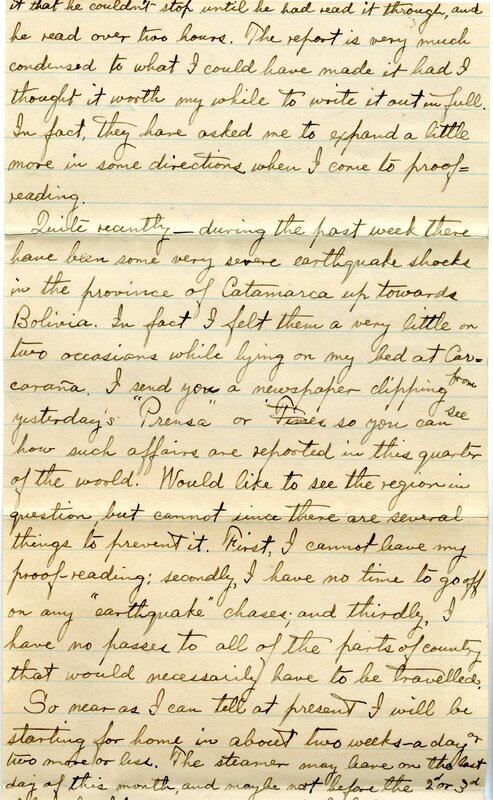 it that he couldn't stop until he had read it through, and
he read over two hours. The report is very much
condensed to what I could have made it had I
thought it worth my while to write it out in full.
In fact, they have asked me to expand a little
more in some directions when I come to proof=
reading.
Quite recently — during the past week there
have been some very severe earthquake shocks
in the province of Catamarca up towards
Bolivia. In fact I felt them a very little on
two occasions while lying on my bed at Car-
caraña. I send you a newspaper clipping from
yesterday's "Prensa" or "Times so you can see
how such affairs are reported in this quarter
of the world. Would like to see the region in
question, but cannot since there are several
things to prevent it. First, I cannot leave my
proof-reading; secondly, I have no time to go off
on any "earthquake" chases; and thirdly, I
have no passes to all of the parts of country
that would necessarily have to be travelled.
So near as I can tell at present I will be
starting for home in about two weeks – a day or
two more or less. The steamer may leave on the last
day of this month, and maybe not before the 2d or 3d